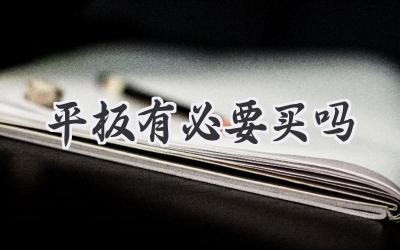 平板有必要买吗